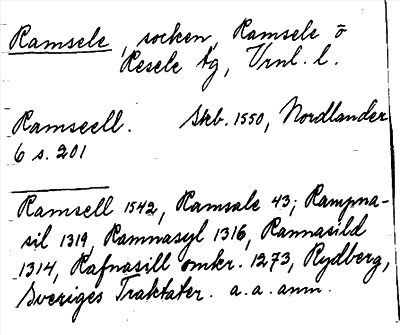 Ramsele, socken, Ramsele o
Resele tg, Vrnl. l.
Ramseell. Skb. 1550, Nordlander
6 s. 201
Ramsell 1542, Ramsale 43; Rampna-
sil 1319, Ramnasyl 1316, Rannasild
1314, Rafnasill omkr. 1273, Rydberg,
Sveriges Traktater. a. a. anm.